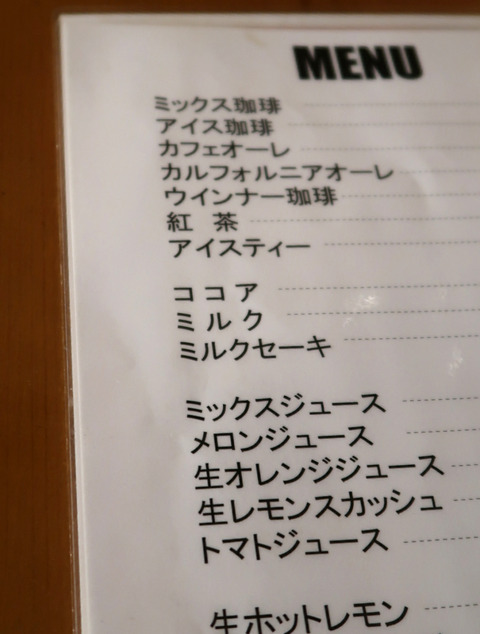 MENU
ミックス珈琲
アイス珈琲
カフェオーレ
カルフォルニアオーレ
ウインナー珈琲
紅　茶
アイスティー
コ コ ア
ミ ル ク
ミルクセーキ
ミックスジュース
メロンジュース
生オレンジジュース
生レモンスカッシュ
トマトジュース
生ホットレモン